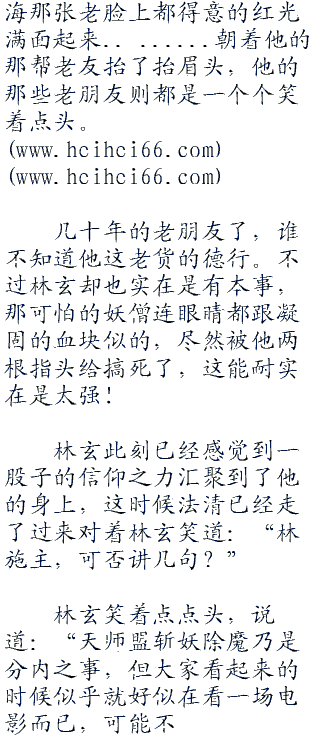 海那张老脸上都得意的红光
满面起来.. ......朝着他的
那帮老友抬了抬眉头，他的
那些老朋友则都是一个个笑
着点头。
(www.hcihci66.com)
(www.hcihci66.com)
几十年的老朋友了，谁
不知道他这老货的德行。不
过林玄却也实在是有本事，
那可怕的妖僧连眼睛都跟凝
固的血块似的，尽然被他两
根指头给搞死了，这能耐实
在是太强！
林玄此刻已经感觉到一
股子的信仰之力汇聚到了他
的身上，这时候法清已经走
了过来对着林玄笑道：“林
施主，可否讲几句？”
林玄笑着点点头，说
道：“天师盟斩妖除魔乃是
分内之事，但大家看起来的
时候似乎就好似在看一场电
影而已，可能不